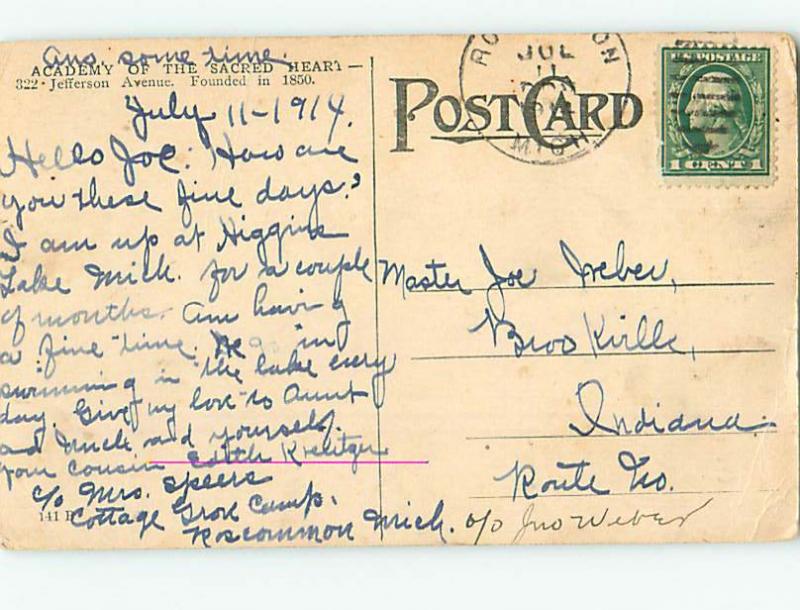 Ans. some time.
ACADEMY OF THE SACRED HEART —
322 Jefferson Avenue. Founded in 1850.
July 11-1914.
Hello Joe: How are
you these fine days?
I am up at Higgins
Lake Mich. for a couple
of months. Am having
a fine time. in
swimming in the lake every
day. Give my love to Aunt
and Uncle and yourself.
Your cousin Edith
c/o Mrs. Speers
Cottage Grove Camp.
Roscommon Mich.
141
POST CARD
JUL
11
MICH
U.S. POSTAGE
1 CENT 1
Master Joe Weber,
Brookville,
Indiana.
Route No.
c/o Jno Weber